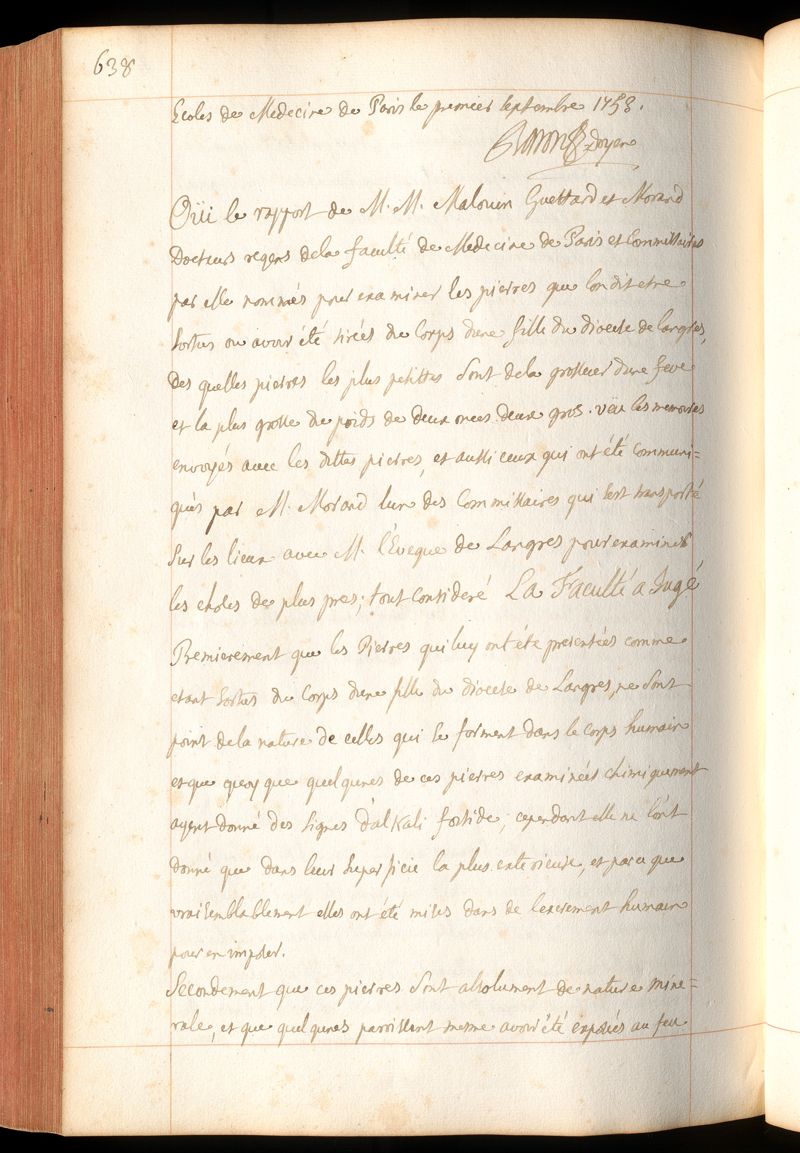 638
Ecoles de Medecine de Paris le premier septembre 1753.
Baron Doyen
Oüi le rapport de M. M. Malouin Guettard et Morand
Docteurs regens dela faculté de Medecine de Paris et Commissaires
par elle nommés pour examiner les pierres que lon dit etre
sorties ou avoir été tirées du Corps dune fille du diocese de Langres,
des quelles pierres les plus petittes sont dela grosseur dune feve
et la plus grosse du poids de deux onces deux gros. vëu les memoires
envoyés avec les dittes pierres, et aussi ceux qui ont été Communi=
qués par M. Morand lun des Commissaires qui sest transporté
sur les lieux avec M. l'Eveque de Langres pour examiner
les choses de plus pres; tout consideré La Faculté a Jugé
Premierement que les Pierres qui luy ont été presentées comme
etant sorties du Corps dune fille du diocese de Langres, ne sont
point dela nature de celles qui se forment dans le corps humain
et que quoy que quelqunes de ces pierres examinées chimiquement
ayent donné des signes d'alKali foetide, cependant elle ne l'ont
donné que dans leur superficie la plus exterieure, et parce que
vraisemblablement elles ont été mises dans de lexcrement humain
pour en imposer.
Secondement que ces pierres sont absolument de nature mine=
rale, et que quelqunes paroissent mesme avoir été exposées au feu